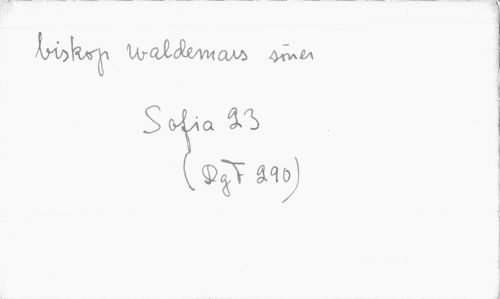 biskop waldemars söner
Sofia 23
(DgF 290)